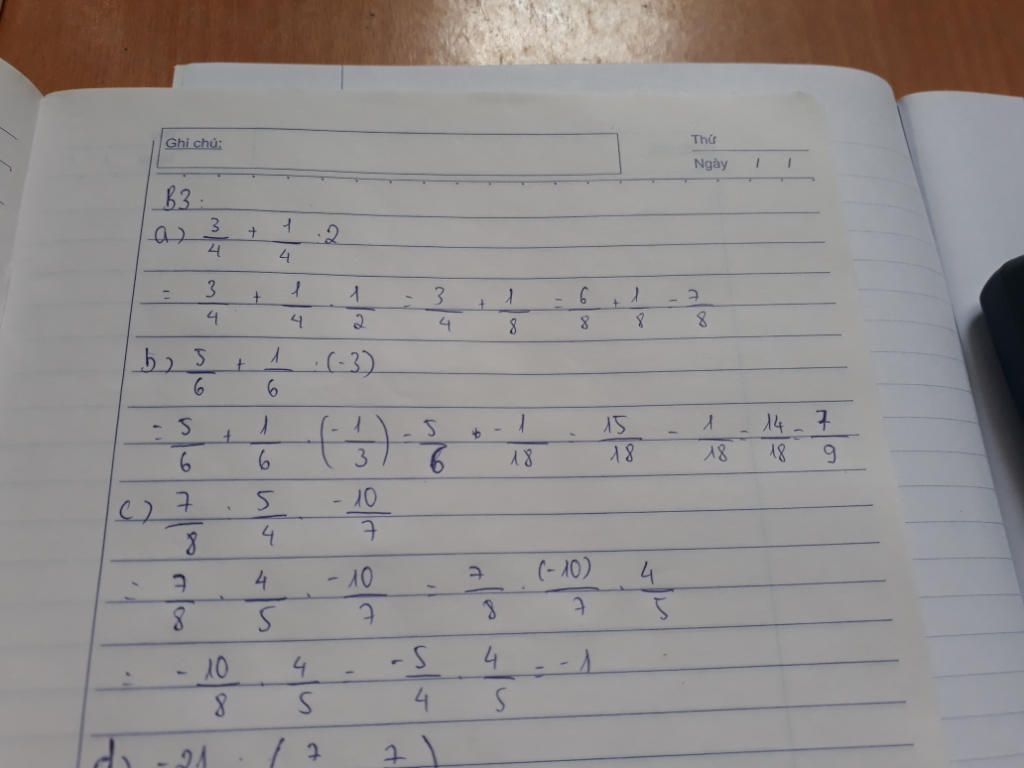 Ghi chú:
Thứ
Ngày / /
B3:
a) 3/4 + 1/4 . 2
= 3/4 + 1/4 . 1/2 = 3/4 + 1/8 = 6/8 + 1/8 = 7/8
b) 5/6 + 1/6 . (-3)
= 5/6 + 1/6 . (-1/3) = 5/6 + -1/18 = 15/18 - 1/18 = 14/18 = 7/9
c) 7/8 . 5/4 . -10/7
= 7/8 . 4/5 . -10/7 = 7/8 . (-10)/7 . 4/5
= -10/8 . 4/5 = -5/4 . 4/5 = -1
d) -21 : (7 7)